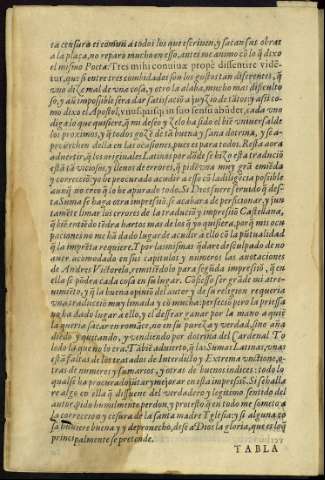 ta censura es comun a todos los que escriuen, y sacan sus obras
a la plaça, no reparo mucho en esso, antes me animo cō lo q̃ dixo
el mismo Poeta: Tres mihi conuiuæ propè dissentire vidē-
tur, que si entre tres combidados son los gustos tan diferentes, q̃
vno dize mal de vna cosa, y otro la alaba, mucho mas dificulto
so, y aũ impossible sera dar satisfació a juyzio de tātos: y assi co-
mo dixo el Apostol, vnusquisq; in suo sensu abūdet, cada vno
diga lo que quisiere, q̃ mi deseo y zelo ha sido el biē vniuersal de
los proximos, y q̃ todos gozē de tā buena y sana dotrina, y se a-
prouechen della en las ocasiones, pues es para todos. Resta aora
aduertir, q̃ los originales Latinos por dōde se hizo esta traducció
está tā viciosos, y llenos de errores, q̃ pidē vna muy grā emiēda
y correcciō: yo he procurado acudir a ello cō la diligēcia possible
aunq̃ no creo q̃ lo he apurado todo. Si Dios fuere seruido q̃ des-
ta Suma se haga otra impressió, se acabara de perficionar, y jun
tamēte limar los errores de la traduciō y impressiō Castellana,
q̃ biē entiēdo tēdra hartos mas de los q̃ yo quisiera, porq̃ mis ocu
paciones no me hā dado lugar de acudir a ello cō la pūtualidad
q̃ la imprēta requiere. Y por las mismas q̃dare desculpado de no
auer acomodado en sus capitulos y numeros las anotaciones
de Andres Victorelo, remitiēdolo para segūda impressiō, q̃ en
ella se pōdra cada cosa en su lugar.
numēto, y q̃ la buena opiniō del autor y de su relegiō requeria
vna traducciō muy limada y cō mucha perfeciō pero la priessa
no ha dado lugar a ello, y el dessear ganar por la mano a quiē
la queria sacar en romāce, no en su pureza y verdad, sino aña
diēdo y quitando, y vendiendo por dotrina del Cardenal To-
ledo lo que no lo era. Tābiē aduierto, q̃ las Sumas Latinas, vnas
estā faltas de los tratados de Interdicto y Extrema vnctione, o-
tras de numeros y sumarios, y otras de buenos indices: todo lo
qual se ha procurado jūtar y mejorar en esta impressiō. Si se halla
re algo en ella q̃ dissuene del verdadero y legitimo sentido del
autor, pido humilmente perdon, y protesto, q̃ en todo me someto a
la correccion y cēsura de la santa madre Yglesia: y si alguna co
sa huuiere buena y de prouecho, dese a Dios la gloria, que es lo q̃
principalmente se pretende.
TABLA